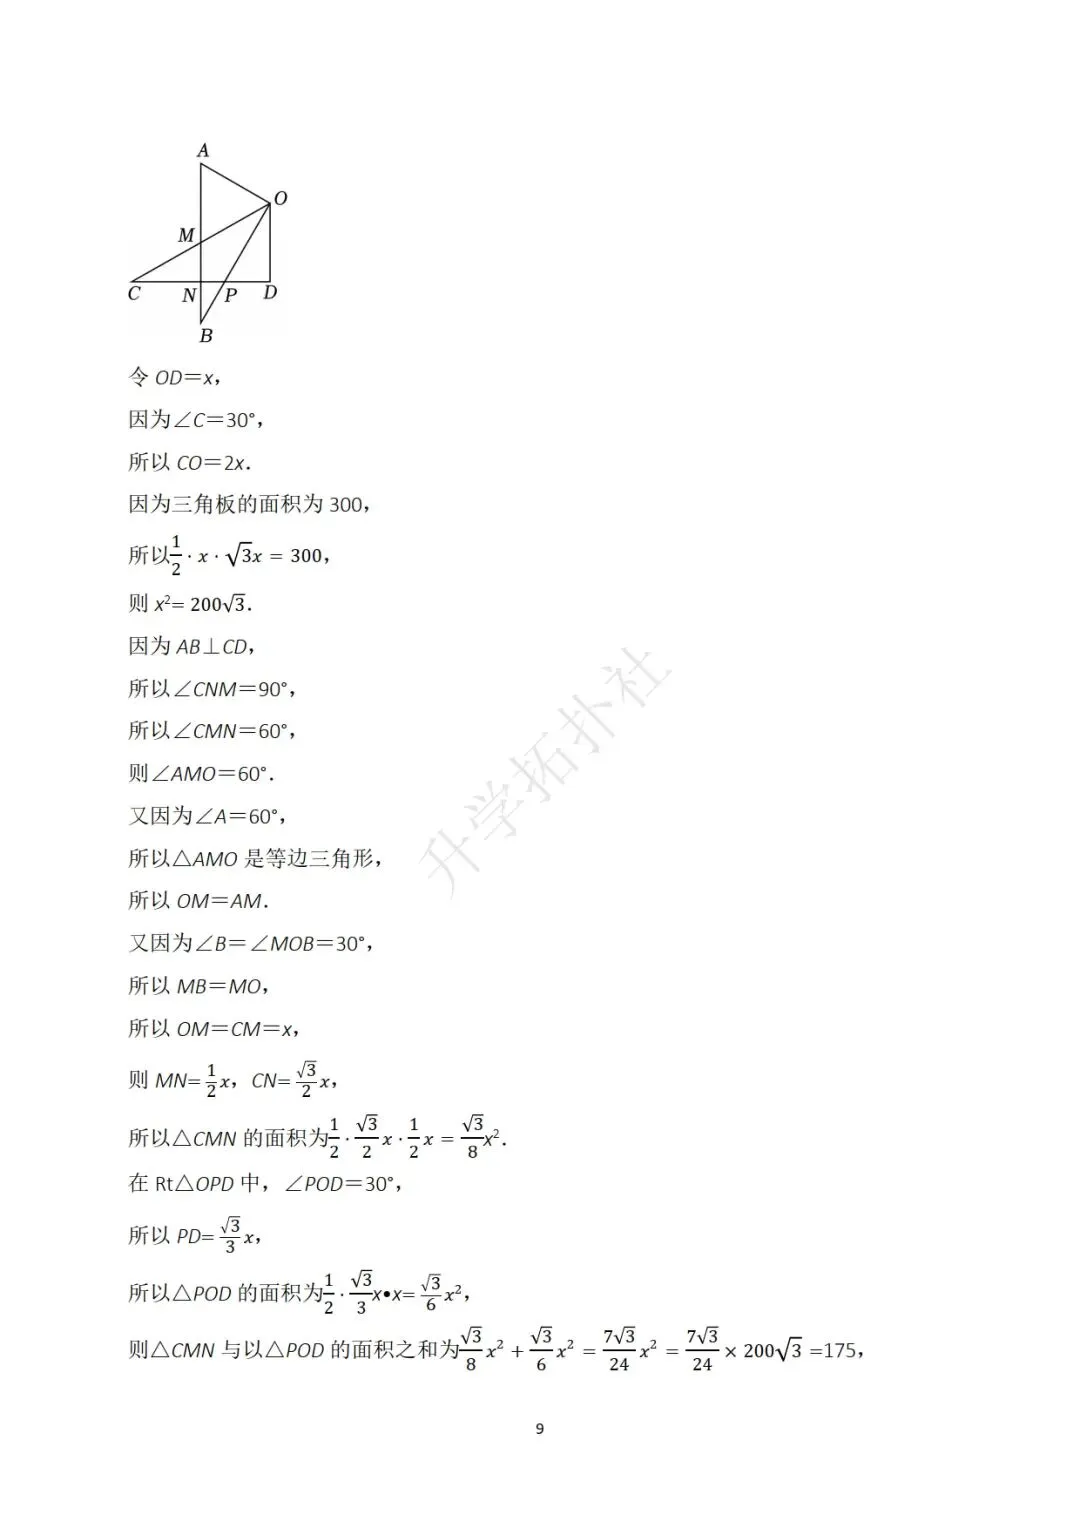 A
O
M
C N P D
B
令 OD＝x，
因为∠C＝30°，
所以 CO＝2x．
因为三角板的面积为 300，
所以1/2 · x · √3x = 300，
则 x²= 200√3．
因为 AB⊥CD，
所以∠CNM＝90°，
所以∠CMN＝60°，
则∠AMO＝60°．
又因为∠A＝60°，
所以△AMO 是等边三角形，
所以 OM＝AM．
又因为∠B＝∠MOB＝30°，
所以 MB＝MO，
所以 OM＝CM＝x，
则 MN= 1/2 x，CN= √3/2 x，
所以△CMN 的面积为1/2 · √3/2 x · 1/2 x = √3/8 x²．
在 Rt△OPD 中，∠POD＝30°，
所以 PD= √3/3 x，
所以△POD 的面积为1/2 · √3/3 x•x= √3/6 x²，
则△CMN 与以△POD 的面积之和为√3/8 x² + √3/6 x² = 7√3/24 x² = 7√3/24 × 200√3 =175，
升学拓扑社
9